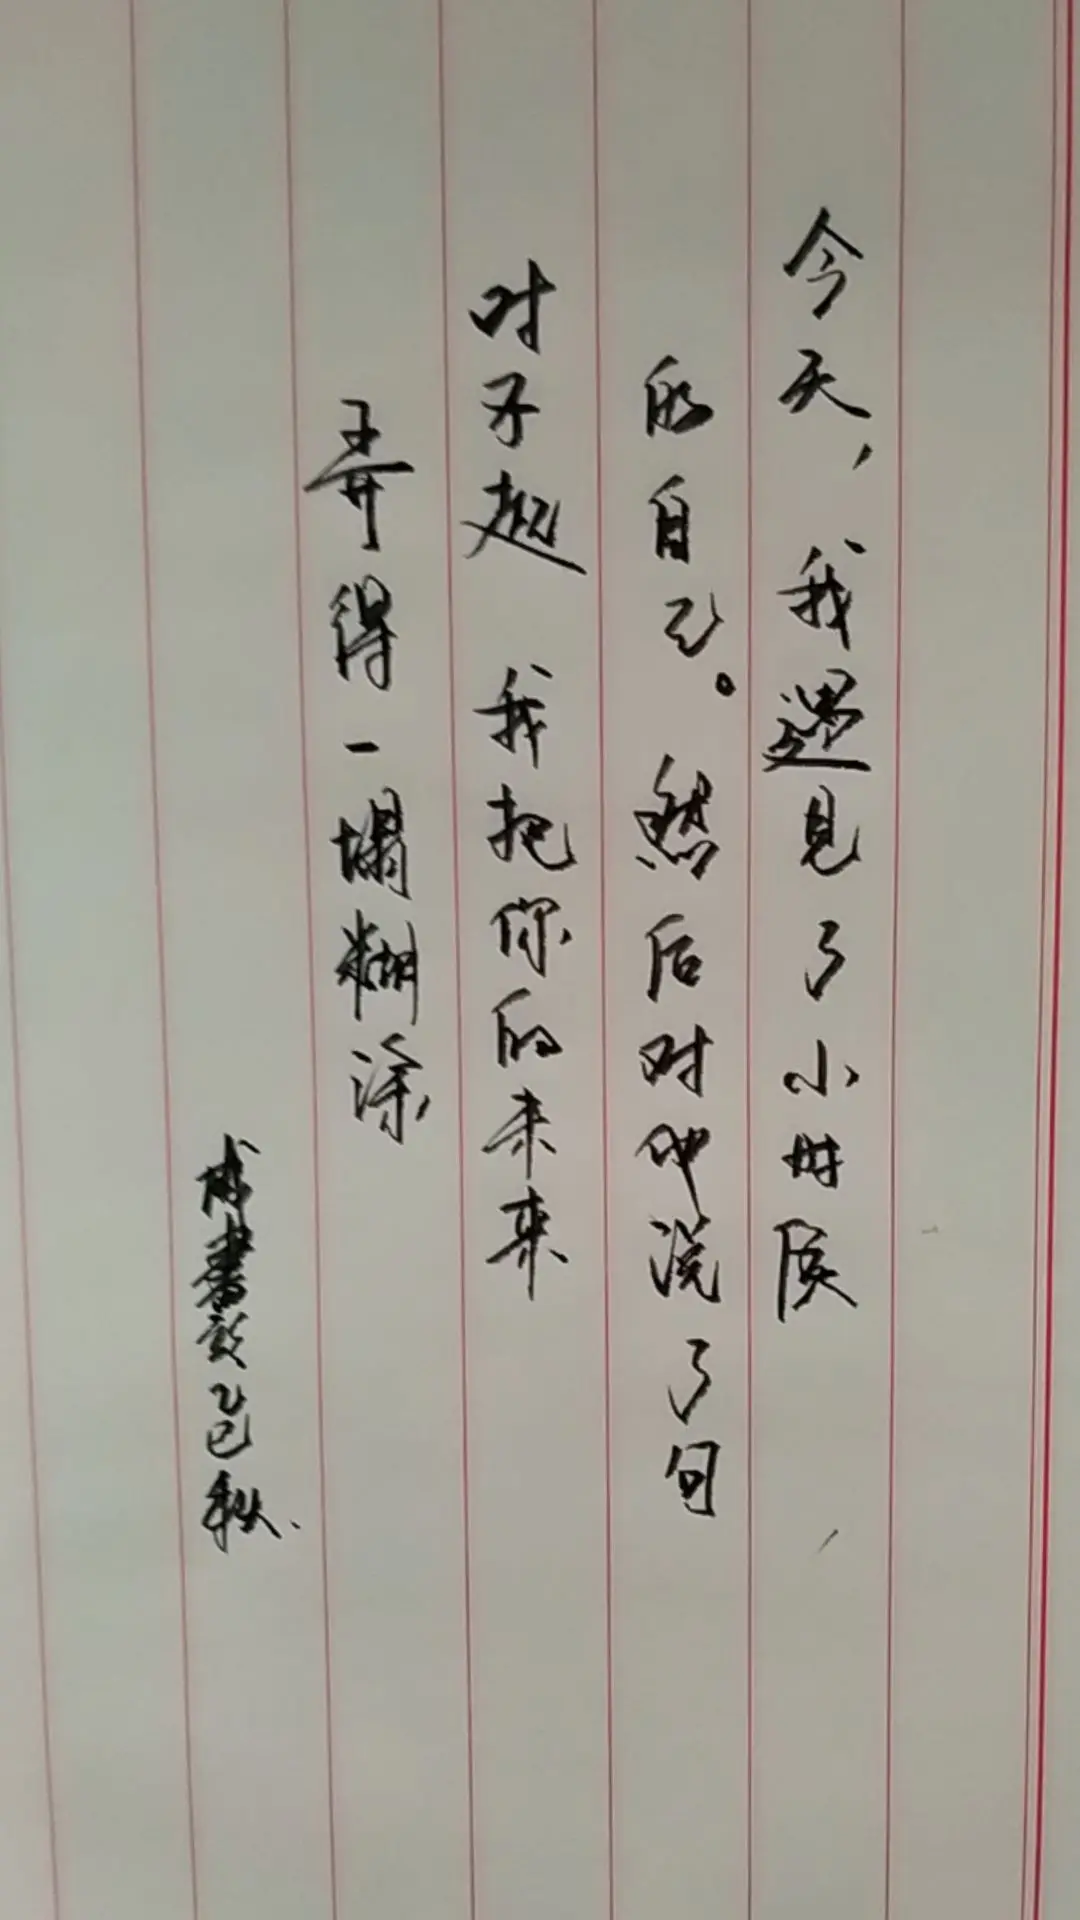 今天，我遇见了小时候
的自己。然后对他说了句
对不起 我把你的未来
弄得一塌糊涂
乙巳秋